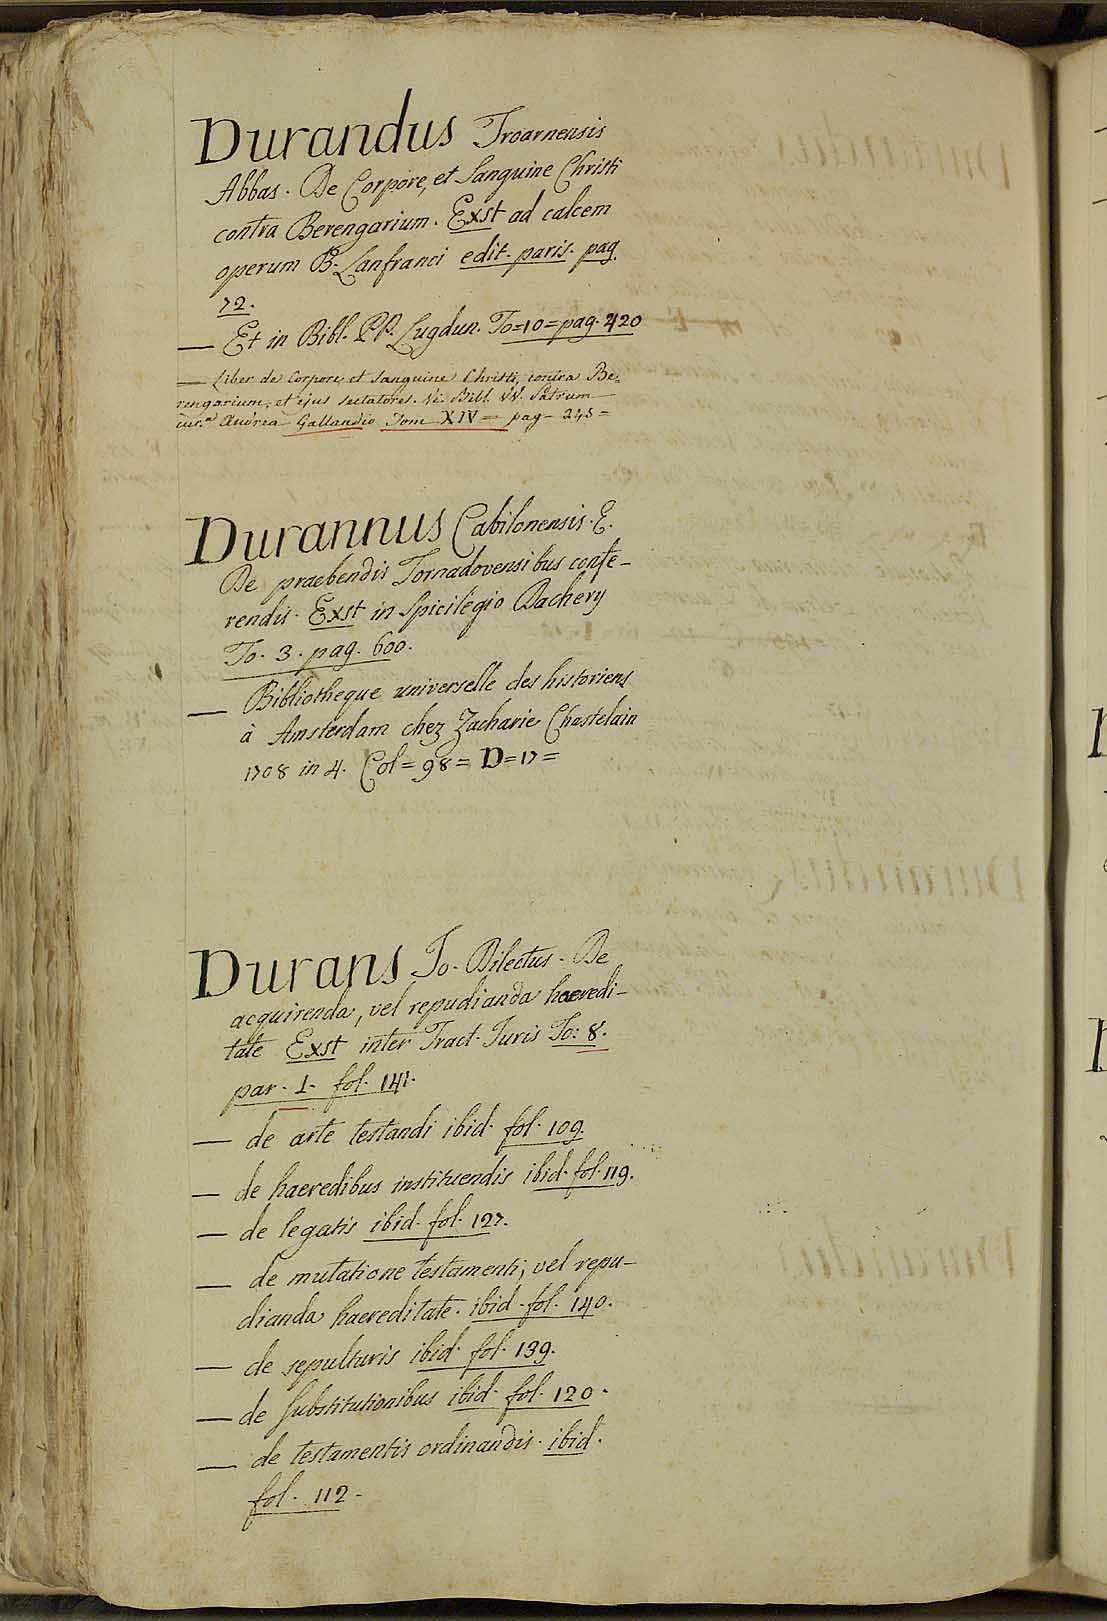 Durandus Troarnensis
Abbas. De Corpore, et Sanguine Christi
contra Berengarium. Exst ad calcem
operum B. Lanfranci edit. paris. pag.
72.
— Et in Bibl. PP. Lugdun. To=10=pag. 420
— Liber de Corpore, et Sanguine Christi, contra Be=
rengarium, et ejus sectatores. Bibl. VV. Patrum
Andrea Gallandio Tom XIV= pag- 245=
Durannus Cabilonensis. E.
De praebendis Tornadovensibus confe-
rendis. Exst in Spicilegio Dachery
To. 3. pag. 600.
— Bibliotheque universelle des historiens
à Amsterdam chez Zacharie Chastelain
1708 in 4. Col=98=D=17=
Durans Jo. Dilectus. De
acquirenda, vel repudianda haeredi-
tate Exst inter Tract. Juris To: 8.
par. 1. fol. 141.
— de arte testandi ibid. fol. 109.
— de haeredibus instituendis ibid. fol. 119.
— de legatis ibid. fol. 127.
— de mutatione testamenti, vel repu-
dianda haereditate. ibid. fol. 140.
— de sepulturis ibid. fol. 139.
— de Substitutionibus ibid. fol. 120.
— de testamentis ordinandis. ibid.
fol. 112.